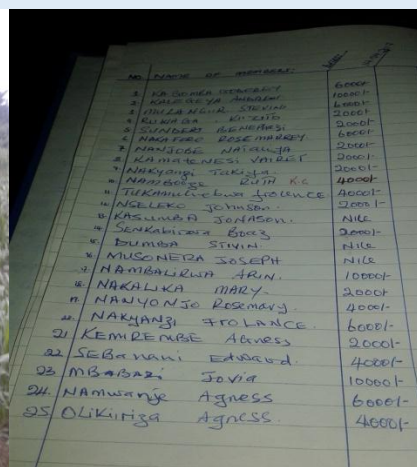 NO. NAME OF MEMBERS.
1. KAGGMBA GODFREY 6000/-
2. KALEGEYA ANDREW 10000/-
3. MULANGUR STEVIN 6000/-
4. BUKABA 2000/-
5. SUNDERS BENEMASI 2000/-
6. NAKAFERO ROSEMARREY 6000/-
7. NANJOBE Natalya 2000/-
8. KAMATENESI VAIRET 2000/-
9. NAKyangi Jakiya. 2000/-
10. NAMBOOZE RUTH K.C 4000/-
11. TUKAMUHEBWA frolence. 4000/-
12. NSELEKO Johnson. 2000/-
13. KASUMBA JONASON. NILL
14. Senkabirawa Booz 2000/-
15. DUMBA STIVIN. NILL
16. MUSONERA JOSEPH NILL
17. NAMBALIRWA ARIN. 10000/-
18. NAKALIKA MARY. 2000/-
19. NANYONJO Rosemary. 4000/-
20. NAKYANZI FROLANCE. 6000/-
21 KEMIREMBE Agness 2000/-
22 SEBanani Edward. 4000/-
23 MBABAZI Jovia 10000/-
24. NAMwanje Agness 6000/-
25 OLIKIIRIZA Agness. 4000/-